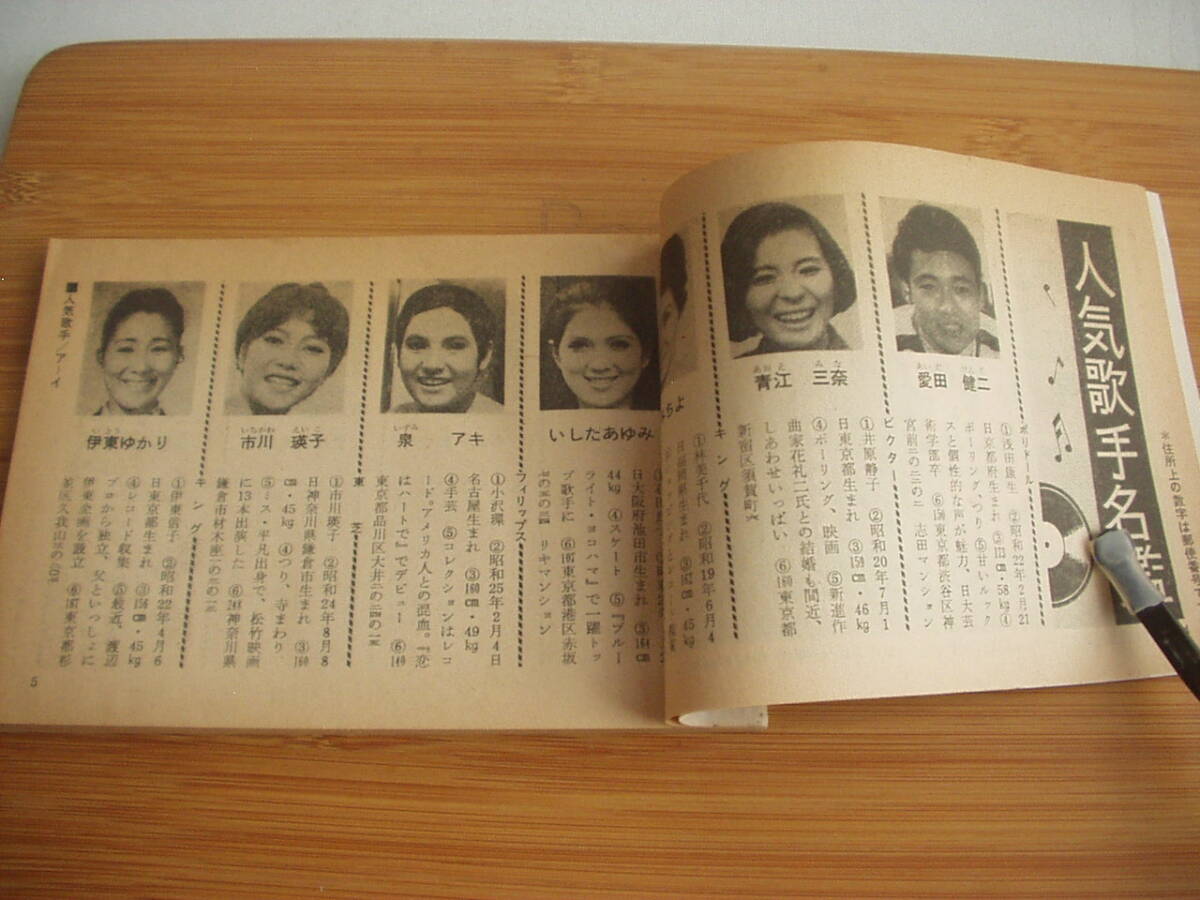 人気歌手名鑑
*住所上の数字は郵便番号で
あいだ けんじ
愛田 健二
ポリドール
①浅田康生 ②昭和22年2月21
日京都府生まれ ③173cm・58kg ④
ボーリング、つり ⑤甘いルック
スと個性的な声が魅力、日大芸
術学部卒 ⑥150東京都渋谷区神
宮前二の三の二 志田マンション
あおえ みな
青江 三奈
ビクター
①井原静子 ②昭和20年7月1
日東京都生まれ ③159cm・46kg
④ボーリング、映画 ⑤新進作
曲家花礼二氏との結婚も間近、
しあわせいっぱい ⑥160東京都
新宿区須賀町六
ちよ
キング
①林美千代 ②昭和19年6月4
③162cm・45kg
いしだあゆみ
日大阪府池田市生まれ ③164cm
44kg ④スケート ⑤『ブルー
ライト・ヨコハマ』で一躍トッ
プ歌手に ⑥107東京都港区赤坂
リキマンション
いずみ
泉 アキ
フィリップス
①小沢環 ②昭和25年2月4日
名古屋生まれ ③160cm・49kg
④手芸 ⑤コレクションはレコ
ード。アメリカ人との混血。『恋
はハートで』でデビュー ⑥140
東京都品川区大井三の二四の一三
いちかわ えいこ
市川 瑛子
東芝
①市川瑛子 ②昭和24年8月8
日神奈川県鎌倉市生まれ ③160
cm・45kg ④つり、寺まわり
⑤ミス・平凡出身で、松竹映画
に13本出演した ⑥248神奈川県
鎌倉市材木座二の二の二三
いとう
伊東ゆかり
キング
①伊東信子 ②昭和22年4月6
日東京都生まれ ③156cm・45kg
④レコード収集 ⑤最近、渡辺
プロから独立、父といっしょに
伊東企画を設立 ⑥167東京都杉
並区久我山三の
■人気歌手/アーイ
5